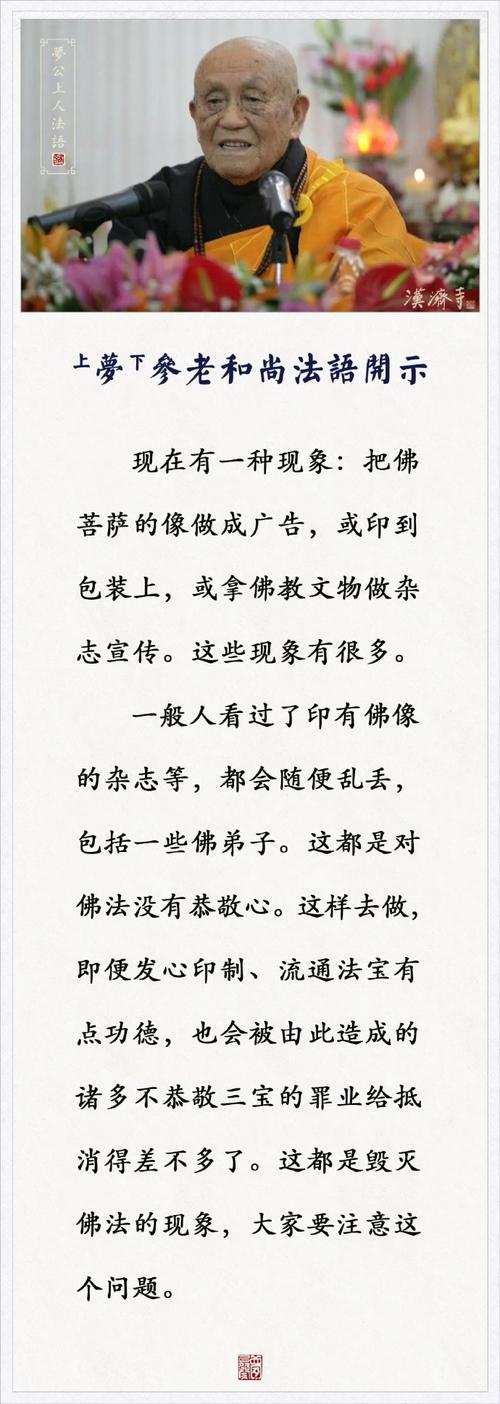 夢公上人法語
漢濟寺
上夢下參老和尚法語開示
现在有一种现象：把佛
菩萨的像做成广告，或印到
包装上，或拿佛教文物做杂
志宣传。这些现象有很多。
一般人看过了印有佛像
的杂志等，都会随便乱丢，
包括一些佛弟子。这都是对
佛法没有恭敬心。这样去做，
即便发心印制、流通法宝有
点功德，也会被由此造成的
诸多不恭敬三宝的罪业给抵
消得差不多了。这都是毁灭
佛法的现象，大家要注意这
个问题。